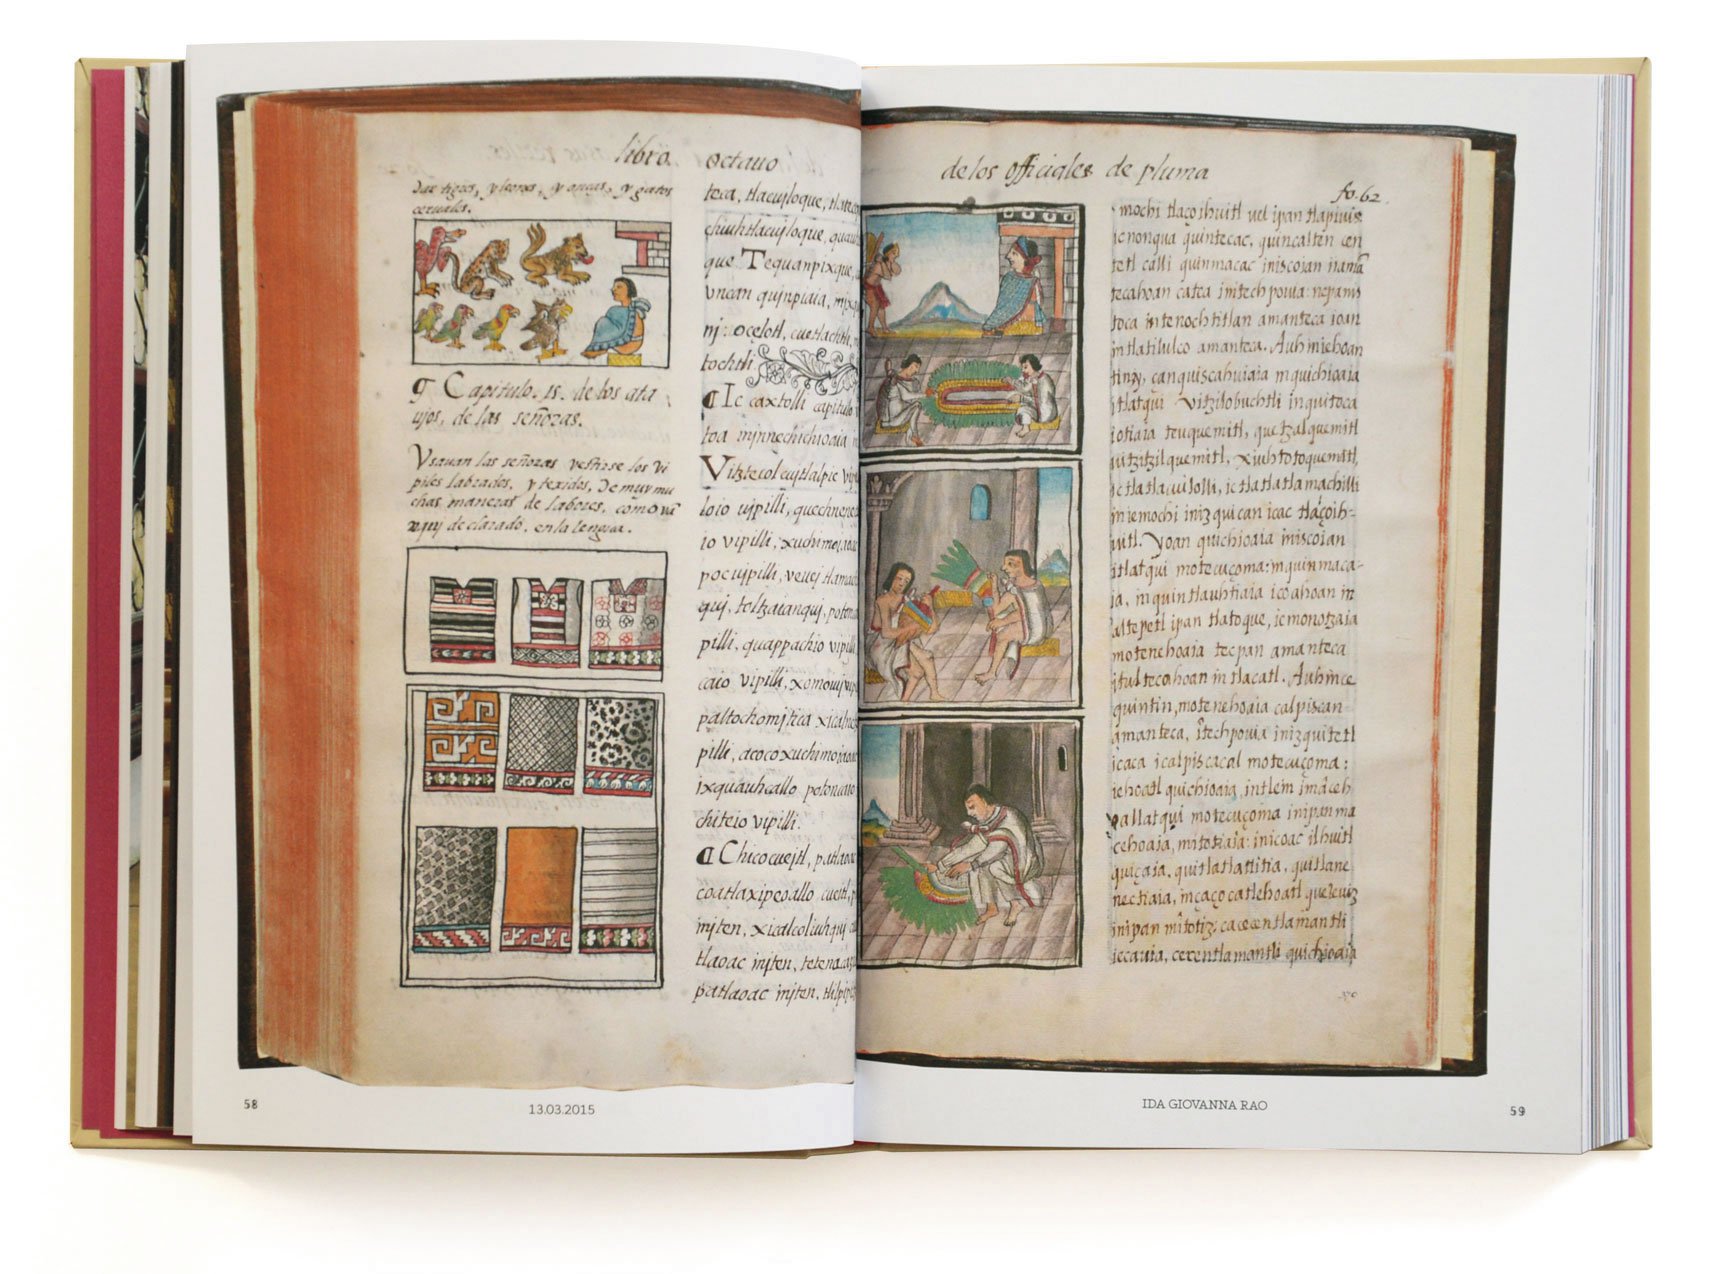 libro. octavo
das tigres, y leones, y onças, y gatos
ceruales.
¶ Capitulo .15. de los ata
ujos, de las señoras.
Vsauan las señoras vestirse los vi
piles labrados, y texidos, de muy mu
chas maneras de labores, como va
aquj declarado, en la lengua.
teca, tlacujloque,
chiuhtlacujloque,
que Tequanpixque,
vncan qujnpiaia,
nj: oçelotl, cuetlachtli,
tochtli
¶ Ic caxtolli capitulo
toa injnnechichioaia
Vitztecol cujtlalpic
loio vipilli,
io vipilli,
pocujpilli,
quj,
pilli, quappachio
caio vipilli,
paltochomjtica
pilli,
ixquauhcallo potoncaio
chiteio vipilli.
¶ Chicocuejtl, patlaoac
coatlaxipeoallo cueitl,
injten, xicalcoliuhquj
tlaoac injten,
patlaoac injten,
58
13.03.2015
de los officiales de pluma
fo. 62
mochi tlaçoihuitl vel ipan tlapiuia
ic nonqua quintecac, quincalten cen
tetl calli quinmacac iniscoian inamā
tecahoan catca imitech pouia: nepanis
toca in tenochtitlan amanteca ioan
in tlatilulco amanteca. Auh miehoan
tiniy, can quiscahuiaia in quichioaia
itlatqui Vitzilobuchtli in quitoca
iotiaia teuquemitl, quetzalquemitl
uitzitzilquemitl, xiuhtotoquemitl,
ic tlatlacuilolli, ic tlatlatlamachilli
in iemochi inizqui can icac tlaçoih-
uitl. Yoan quichioaia iniscoian
itlatqui motecuçoma: in quinmaca-
ia, in quintlauhtiaia icoahoan in
altepetl ipan tlatoque, ic monotzaia
motenehoaia tecpan amanteca
itultecahoan in tlacatl. Auh in ce
quintin, motenehoaia calpiscan
amanteca, itech pouia inizquitetl
icaca icalpiscacal motecuçoma:
iehoatl quichioaia, intlem imaceh
uallatqui motecuçoma inipan ma
cehoaia, mitotiaia: inicoac ilhuitl
quiçaia, quitlatlattitia, quitlane
nectiaia, in çaço catlehoatl queleuiz
inipan mitotiz: ca cecentlamantli
iecauia, cecentlamantli quichioaia
370
IDA GIOVANNA RAO
59